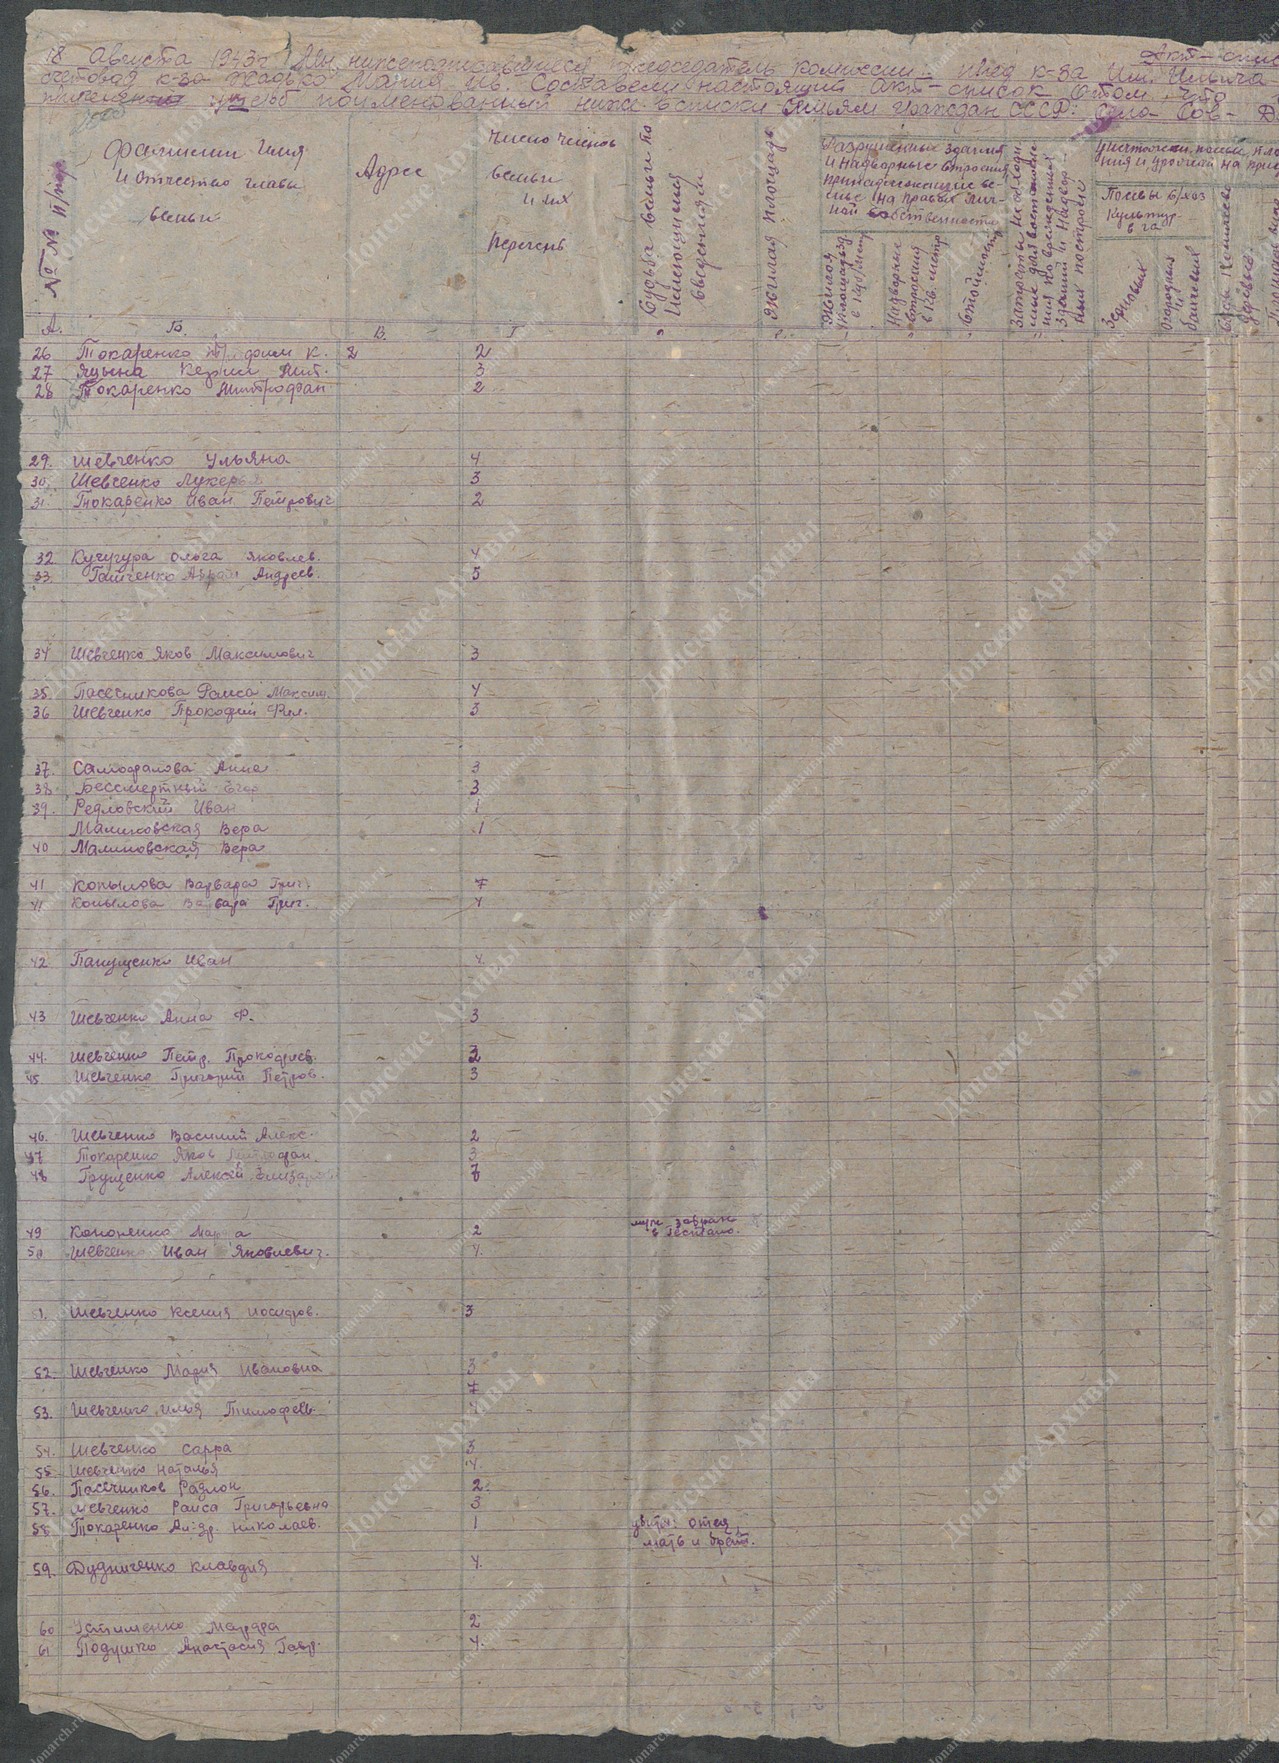 Акт-спис
18 Августа 1943 г Мы нижеподписавшиеся председатель комиссии пред к-за Им. Ильича
счетовод к-за Мария Ив. Составели настоящий акт-список Отом, что
ущерб поименованным ниже в списки семьям граждан СССР: Село-Сов-Д
№№ п/пор
Фамилии Имя
и Отчество главы
семьи
Адрес
Число членов
семьи
и их
перечень
Судьба семьи по
имеющимся
сведениям
Жилая площадь
Разрушенные здания
и надворные строения
принадлежащие се-
мье на правах лич-
ной собственности
Жилая
площадь зд.
в куб/метр
Надворные
строения
в кв. метр
Стоимость
Затраты необходи-
мые для востановле-
ния поврежденных
зданий и надвор-
ных построек
Посевы с/хоз
культур
в га
Зерновых
огородных
и
бахчевых
А. Б. В. Г
26 Токаренко К. 2 2
27 Яцына 3
28 Токаренко Митрофан 2
29. Шевченко Ульяна 4
30. Шевченко Лукерья 3
31. Токаренко Иван Петрович 2
32 Кучугура Ольга Яковлев. 4
33. Андреев. 5
34 Шевченко Яков Максимович 3
35. Пасечникова Раиса Максим. 4
36 Шевченко Прокофий Фил. 3
37. Самофалова Анна 3
38. Бессмертный Егор 3
39. Редловский Иван 1
Малиновская Вера 1
40 Малиновская Вера
41 Копылова Варвара Григ. 7
41 Копылова Варвара Григ. 4
42 Панущенко Иван 4.
43 Шевченко Анна Ф. 3
44. Шевченко Петр. Прокофиев. 2
45. Шевченко Григорий Петров. 3
46. Шевченко Василий Алекс. 2
47 Токаренко Яков Митрофан. 3
48 Грущенко Алексей 7
49 Кононенко 2 муж забран
в Гестапо.
50 Шевченко Иван Яковлевич. 4.
1. Шевченко Ксения Иосифов. 3
52. Шевченко Мария Ивановна 3
7
53. Шевченко Илья Тимофеев
54. Шевченко Сарра 3
55 Шевченко Наталья 4.
56. Пасечников Радион 2.
57. Шевченко Раиса Григорьевна 3
58. Токаренко Андр. Николаев. 1 убиты: отец
мать и брат.
59. Дудниченко Клавдия 4.
60 Устименко 2
61 Подушко Анастасия Гавр. 4.
Донские Архивы
donarch.ru
донархивы.рф